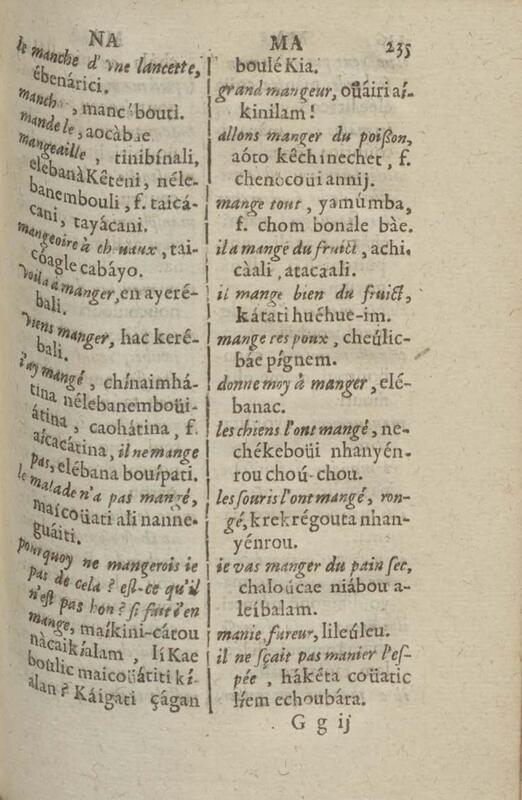 NA
le manche d'vne lancette,
ébenárici.
manch , manc bouti.
mande le, aocàbae
mangeaille, tinibínali,
elébanà Kêteni, néle-
banembouli, f. taicá-
cani, tayácani.
mangeoire à ch uaux, tai-
cóagle cabáyo.
Voila à manger, en ayeré-
bali.
Viens manger, hac keré-
bali.
i'ay mangé, chínaimhá-
tina nélebanemboüi-
átina, caohátina, f.
aícacátina, il ne mange
pas, elébana bouípati.
le malade n'a pas mangé,
maícoüati ali nanne-
guáiti.
pourquoy ne mangerois ie
pas de cela ? est-ce qu'il
n'est pas bon ? si fait i'en
mange, maíkini-cátou
nàcaikíalam, líKae
boulic maicoüátiti kí-
alan ? Káigati çágan
MA 235
boulé Kia.
grand mangeur, oüáiri aí-
kinilam !
allons manger du poißon,
aóto kêchinechet, f.
chenocoüi annij.
mange tout, yamúmba,
f. chom bonale bàe.
il a mange du fruict, achi.
càali, atacaali.
il mange bien du fruict,
kátati huéhue-im.
mange ces poux, cheúlic-
báe pígnem.
donne moy à manger, elé-
banac.
les chiens l'ont mangé, ne-
chékeboüi nhanyén-
rou choú-chou.
les souris l'ont mangé, ron-
gé, krekrégouta nhan-
yénrou.
ie vas manger du pain sec,
chaloúcae niábou a-
leíbalam.
manie, fureur, lileúleu.
il ne sçait pas manier l'es-
pée, hákéta coüatic
líem echoubára.
G g ij